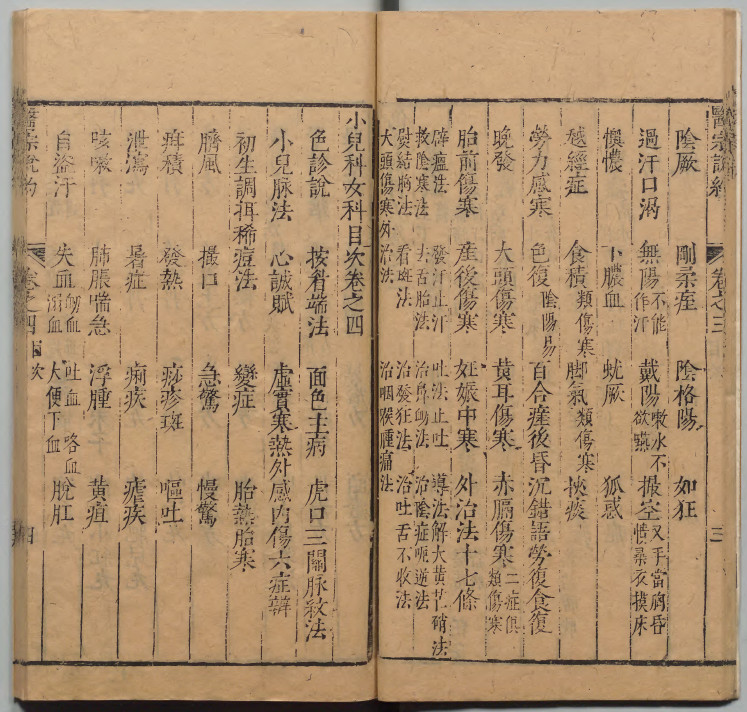 陰厥 剛柔痓 陰格陽 如狂
過汗口渴 無陽不能作汗 戴陽嗽水不欲嚥 撮空叉手當胸昏憒尋衣摸床
懊憹 下膿血 蚘厥 狐惑
越經症 食積類傷寒 脚氣類傷寒 挾痰
勞力感寒 色復陰陽易 百合 産後昏沉錯語 勞復食復
晚發 大頭傷寒 黃耳傷寒 赤膈傷寒二症俱類傷寒
胎前傷寒 産後傷寒 妊娠中寒 外治法十七條
辟瘟法 發汗止汗 吐法止吐 導法解大黃芒硝法
救陰寒法 去舌胎法 治鼻衂法 治陰症呃逆法
熨結胸法 看斑法 治發狂法 治吐舌不收法
大頭傷寒外治法 治咽喉腫痛法
醫宗說約 卷之三 三
小兒科女科目次卷之四
色診說 按脊端法 面色主病 虎口三關脉紋法
小兒脉法 心誠賦 虛實寒熱外感内傷六症辯
初生調揖稀痘法 變症 胎熱胎寒
臍風 撮口 急驚 慢驚
疳積 發熱 痧疹斑 嘔吐
泄瀉 暑症 痢疾 瘧疾
咳嗽 肺脹喘急 浮腫 黃疸
自盜汗 失血 衂血 溺血 吐血 咯血 大便下血 脫肛
醫宗說約 卷之四 目次 四